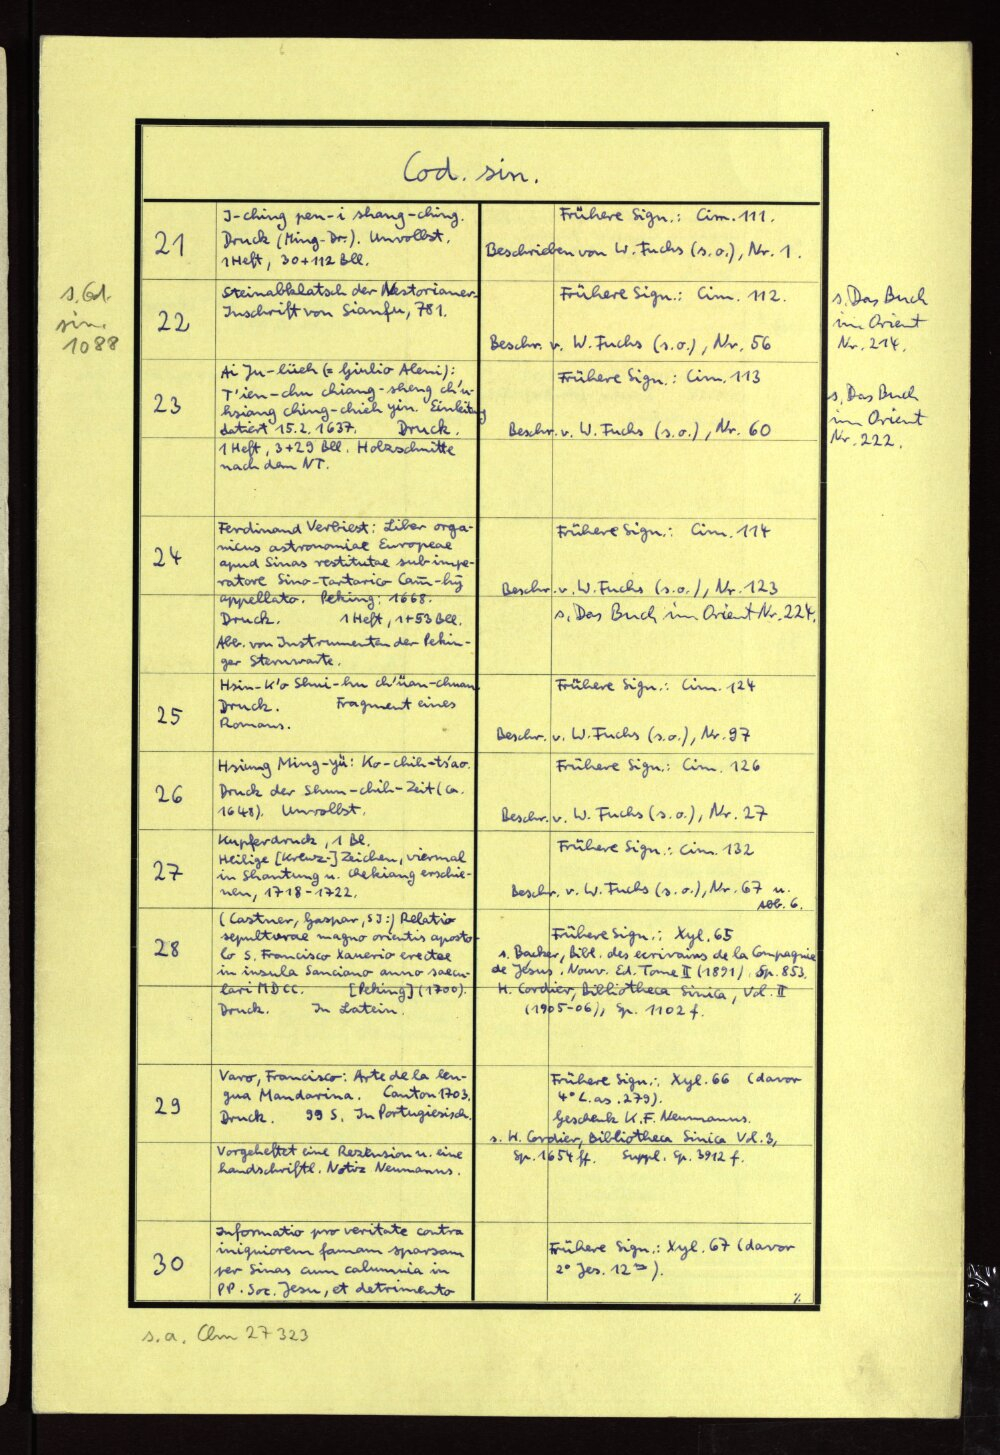 Cod. sin.
21
I-ching pen-i shang-ching.
Druck (Ming-Dr.). Unvollst.
1 Heft, 30+112 Bll.
Frühere Sign.: Cim. 111.
Beschrieben von W. Fuchs (s.o.), Nr. 1.
s. Cod.
sin.
1088
22
Steinabklatsch der Nestorianer-
Inschrift von Sianfu, 781.
Frühere Sign.: Cim. 112.
Beschr. v. W. Fuchs (s.o.), Nr. 56
s. Das Buch
im Orient
Nr. 214.
23
Ai Ju-lüeh (= Giulio Aleni):
T'ien-chu chiang-sheng ch'u-
hsiang ching-chieh yin. Einleitung
datiert 15.2.1637. Druck.
1 Heft, 3+29 Bll. Holzschnitte
nach dem NT.
Frühere Sign.: Cim. 113
Beschr. v. W. Fuchs (s.o.), Nr. 60
s. Das Buch
im Orient
Nr. 222.
24
Ferdinand Verbiest: Liber orga-
nicus astronomiae Europeae
apud Sinas restitutae sub impe-
ratore Sino-Tartarico Cam̄-hȳ
appellato. Peking: 1668.
Druck. 1 Heft, 1+53 Bll.
Abb. von Instrumenten der Pekin-
ger Sternwarte.
Frühere Sign.: Cim. 114
Beschr. v. W. Fuchs (s.o.), Nr. 123
s. Das Buch im Orient Nr. 224.
25
Hsin-k'o Shui-hu ch'üan-chuan
Druck. Fragment eines
Romans.
Frühere Sign.: Cim. 124
Beschr. v. W. Fuchs (s.o.), Nr. 97
26
Hsiung Ming-yü: Ko-chih-ts'ao.
Druck der Shun-chih-Zeit (ca.
1648). Unvollst.
Frühere Sign.: Cim. 126
Beschr. v. W. Fuchs (s.o.), Nr. 27
27
Kupferdruck, 1 Bl.
Heilige [Kreuz-] Zeichen, viermal
in Shantung u. Chekiang erschie-
nen, 1718-1722.
Frühere Sign.: Cim. 132
Beschr. v. W. Fuchs (s.o.), Nr. 67 u.
Abb. 6.
28
(Castner, Gaspar, SJ:) Relatio
sepulturae magno orientis aposto-
lo S. Francisco Xauerio erectae
in insula Sanciano anno saecu-
lari MDCC. [Peking] (1700).
Druck. In Latein.
Frühere Sign.: Xyl. 65
s. Backer, Bibl. des ecrivains de la Compagnie
de Jésus. Nouv. Ed. Tome II (1891). Sp. 853.
H. Cordier, Bibliotheca Sinica, Vol. II
(1905-06), Sp. 1102 f.
29
Varo, Francisco: Arte de la len-
gua Mandarina. Canton 1703.
Druck. 99 S. In Portugiesisch.
Vorgeheftet eine Rezension u. eine
handschriftl. Notiz Neumanns.
Frühere Sign.: Xyl. 66 (davor
4° L. as. 279).
Geschenk K. F. Neumanns.
s. H. Cordier, Bibliotheca Sinica Vol. 3,
Sp. 1654 ff. Suppl. Sp. 3912 f.
30
Informatio pro veritate contra
iniquiorem famam sparsam
per Sinas cum calumnia in
PP. Soc. Jesu, et detrimento
Frühere Sign.: Xyl. 67 (davor
2° Jes. 12).
./.
s. a. Clm 27323